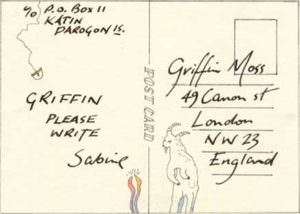 c/o P.O. Box 11
KATIN
PAROGON IS.
GRIFFIN
PLEASE
WRITE
Sabine
POST CARD
Griffin Moss
49 Canon st
London
NW 23
England